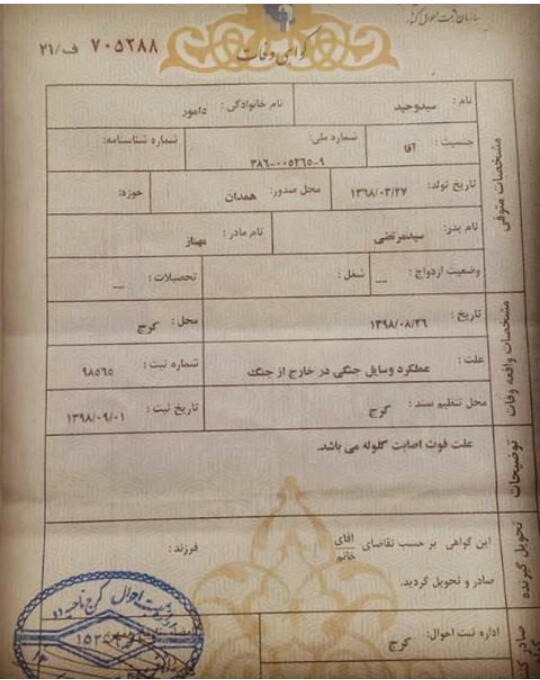 سازمان ثبت احوال کشور
گواهی وفات
۷۰۵۲۸۸ ف/۲۱
مشخصات متوفی
نام: سیدوحید نام خانوادگی: دامور
جنسیت: آقا شماره ملی: ۳۸۶-۰۰۵۲۶۵-۹ شماره شناسنامه:
تاریخ تولد: ۱۳۶۸/۰۳/۲۷ محل صدور: همدان حوزه:
نام پدر: سیدمرتضی نام مادر: مهناز
وضعیت ازدواج: — شغل: تحصیلات: —
مشخصات واقعه وفات
تاریخ: ۱۳۹۸/۰۸/۲۶ محل: کرج
علت: عملکرد وسایل جنگی در خارج از جنگ شماره ثبت: ۹۸۵۶۵
محل تنظیم سند: کرج تاریخ ثبت: ۱۳۹۸/۰۹/۰۱
توضیحات
علت فوت اصابت گلوله می باشد.
تحویل گیرنده
این گواهی بر حسب تقاضای آقای خانم فرزند:
صادر و تحویل گردید.
اداره ثبت احوال: کرج
ثبت احوال کرج ناحیه